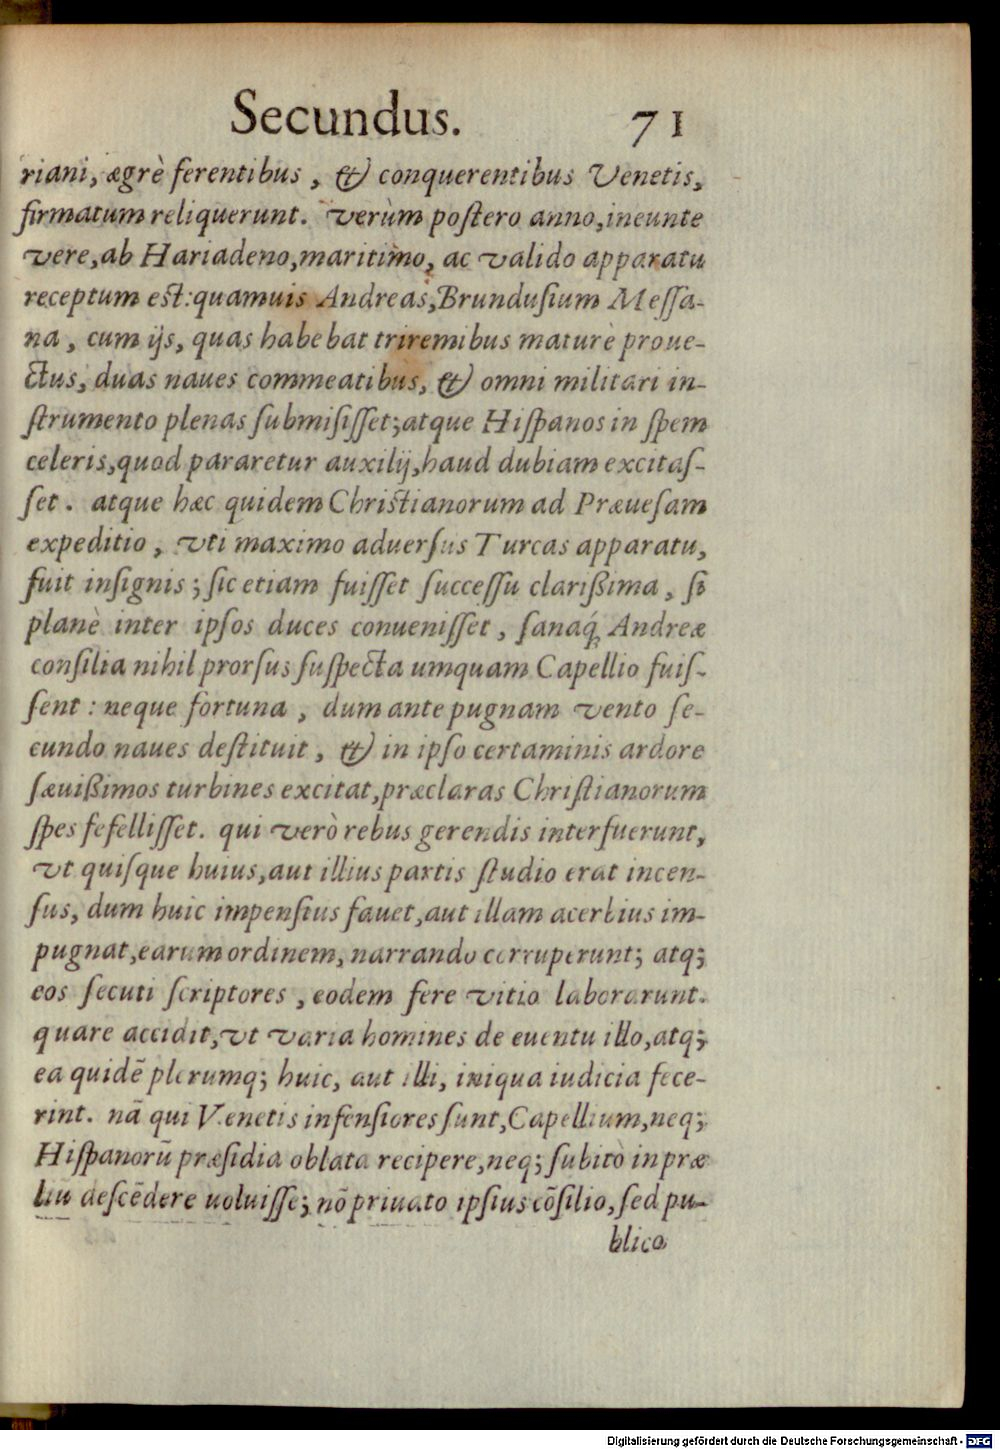 Secundus. 71
riani, ægrè ferentibus, & conquerentibus Venetis,
firmatum reliquerunt. verùm poſtero anno, ineunte
vere, ab Hariadeno, maritimo, ac valido apparatu
receptum eſt: quamuis Andreas, Brunduſium Meſſa-
na, cum ijs, quas habebat triremibus maturè proue-
ctus, duas naues commeatibus, & omni militari in-
ſtrumento plenas ſubmiſiſſet; atque Hiſpanos in ſpem
celeris, quod pararetur auxilij, haud dubiam excitaſ-
ſet. atque hæc quidem Chriſtianorum ad Præueſam
expeditio, vti maximo aduerſus Turcas apparatu,
fuit inſignis; ſic etiam fuiſſet ſucceſſu clarißima, ſi
planè inter ipſos duces conueniſſet, ſanaq́; Andreæ
conſilia nihil prorſus ſuſpecta umquam Capellio fuiſ-
ſent: neque fortuna, dum ante pugnam vento ſe-
cundo naues deſtituit, & in ipſo certaminis ardore
ſæuißimos turbines excitat, præclaras Chriſtianorum
ſpes fefelliſſet. qui verò rebus gerendis interfuerunt,
vt quiſque huius, aut illius partis ſtudio erat incen-
ſus, dum huic impenſius fauet, aut illam acerbius im-
pugnat, earum ordinem, narrando corruperunt; atq;
eos ſecuti ſcriptores, eodem fere vitio laborarunt.
quare accidit, vt varia homines de euentu illo, atq;
ea quidē plerumq; huic, aut illi, iniqua iudicia fece-
rint. nā qui Venetis infenſiores ſunt, Capellium, neq;
Hiſpanorū præſidia oblata recipere, neq; ſubitò in præ
liū deſcēdere uoluiſſe; nō priuato ipſius cōſilio, ſed pu-
blico
Digitalisierung gefördert durch die Deutsche Forschungsgemeinschaft - DFG